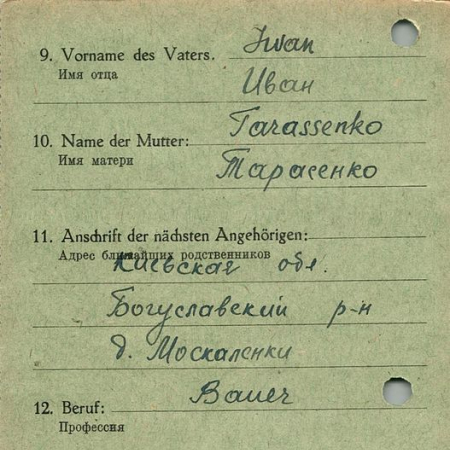 Iwan
9. Vorname des Vaters.
Имя отца
Иван
Tarassenko
10. Name der Mutter:
Имя матери
Тарасенко
11. Anschrift der nächsten Angehörigen:
Адрес ближайших родственников
Киевская обл.
Богуславский р-н
д. Москаленки
Bauer
12. Beruf:
Профессия